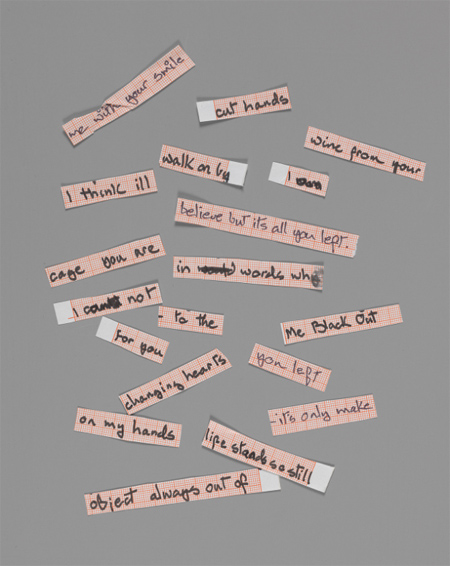 me with your smile
cut hands
wine from your
walk on by
I
I think ill
believe but it's all you left.
cage you are
in words who
I not
- to the
Me Black Out
for you
you left
changing hearts
-it's only make
on my hands
life stands so still
object always out of